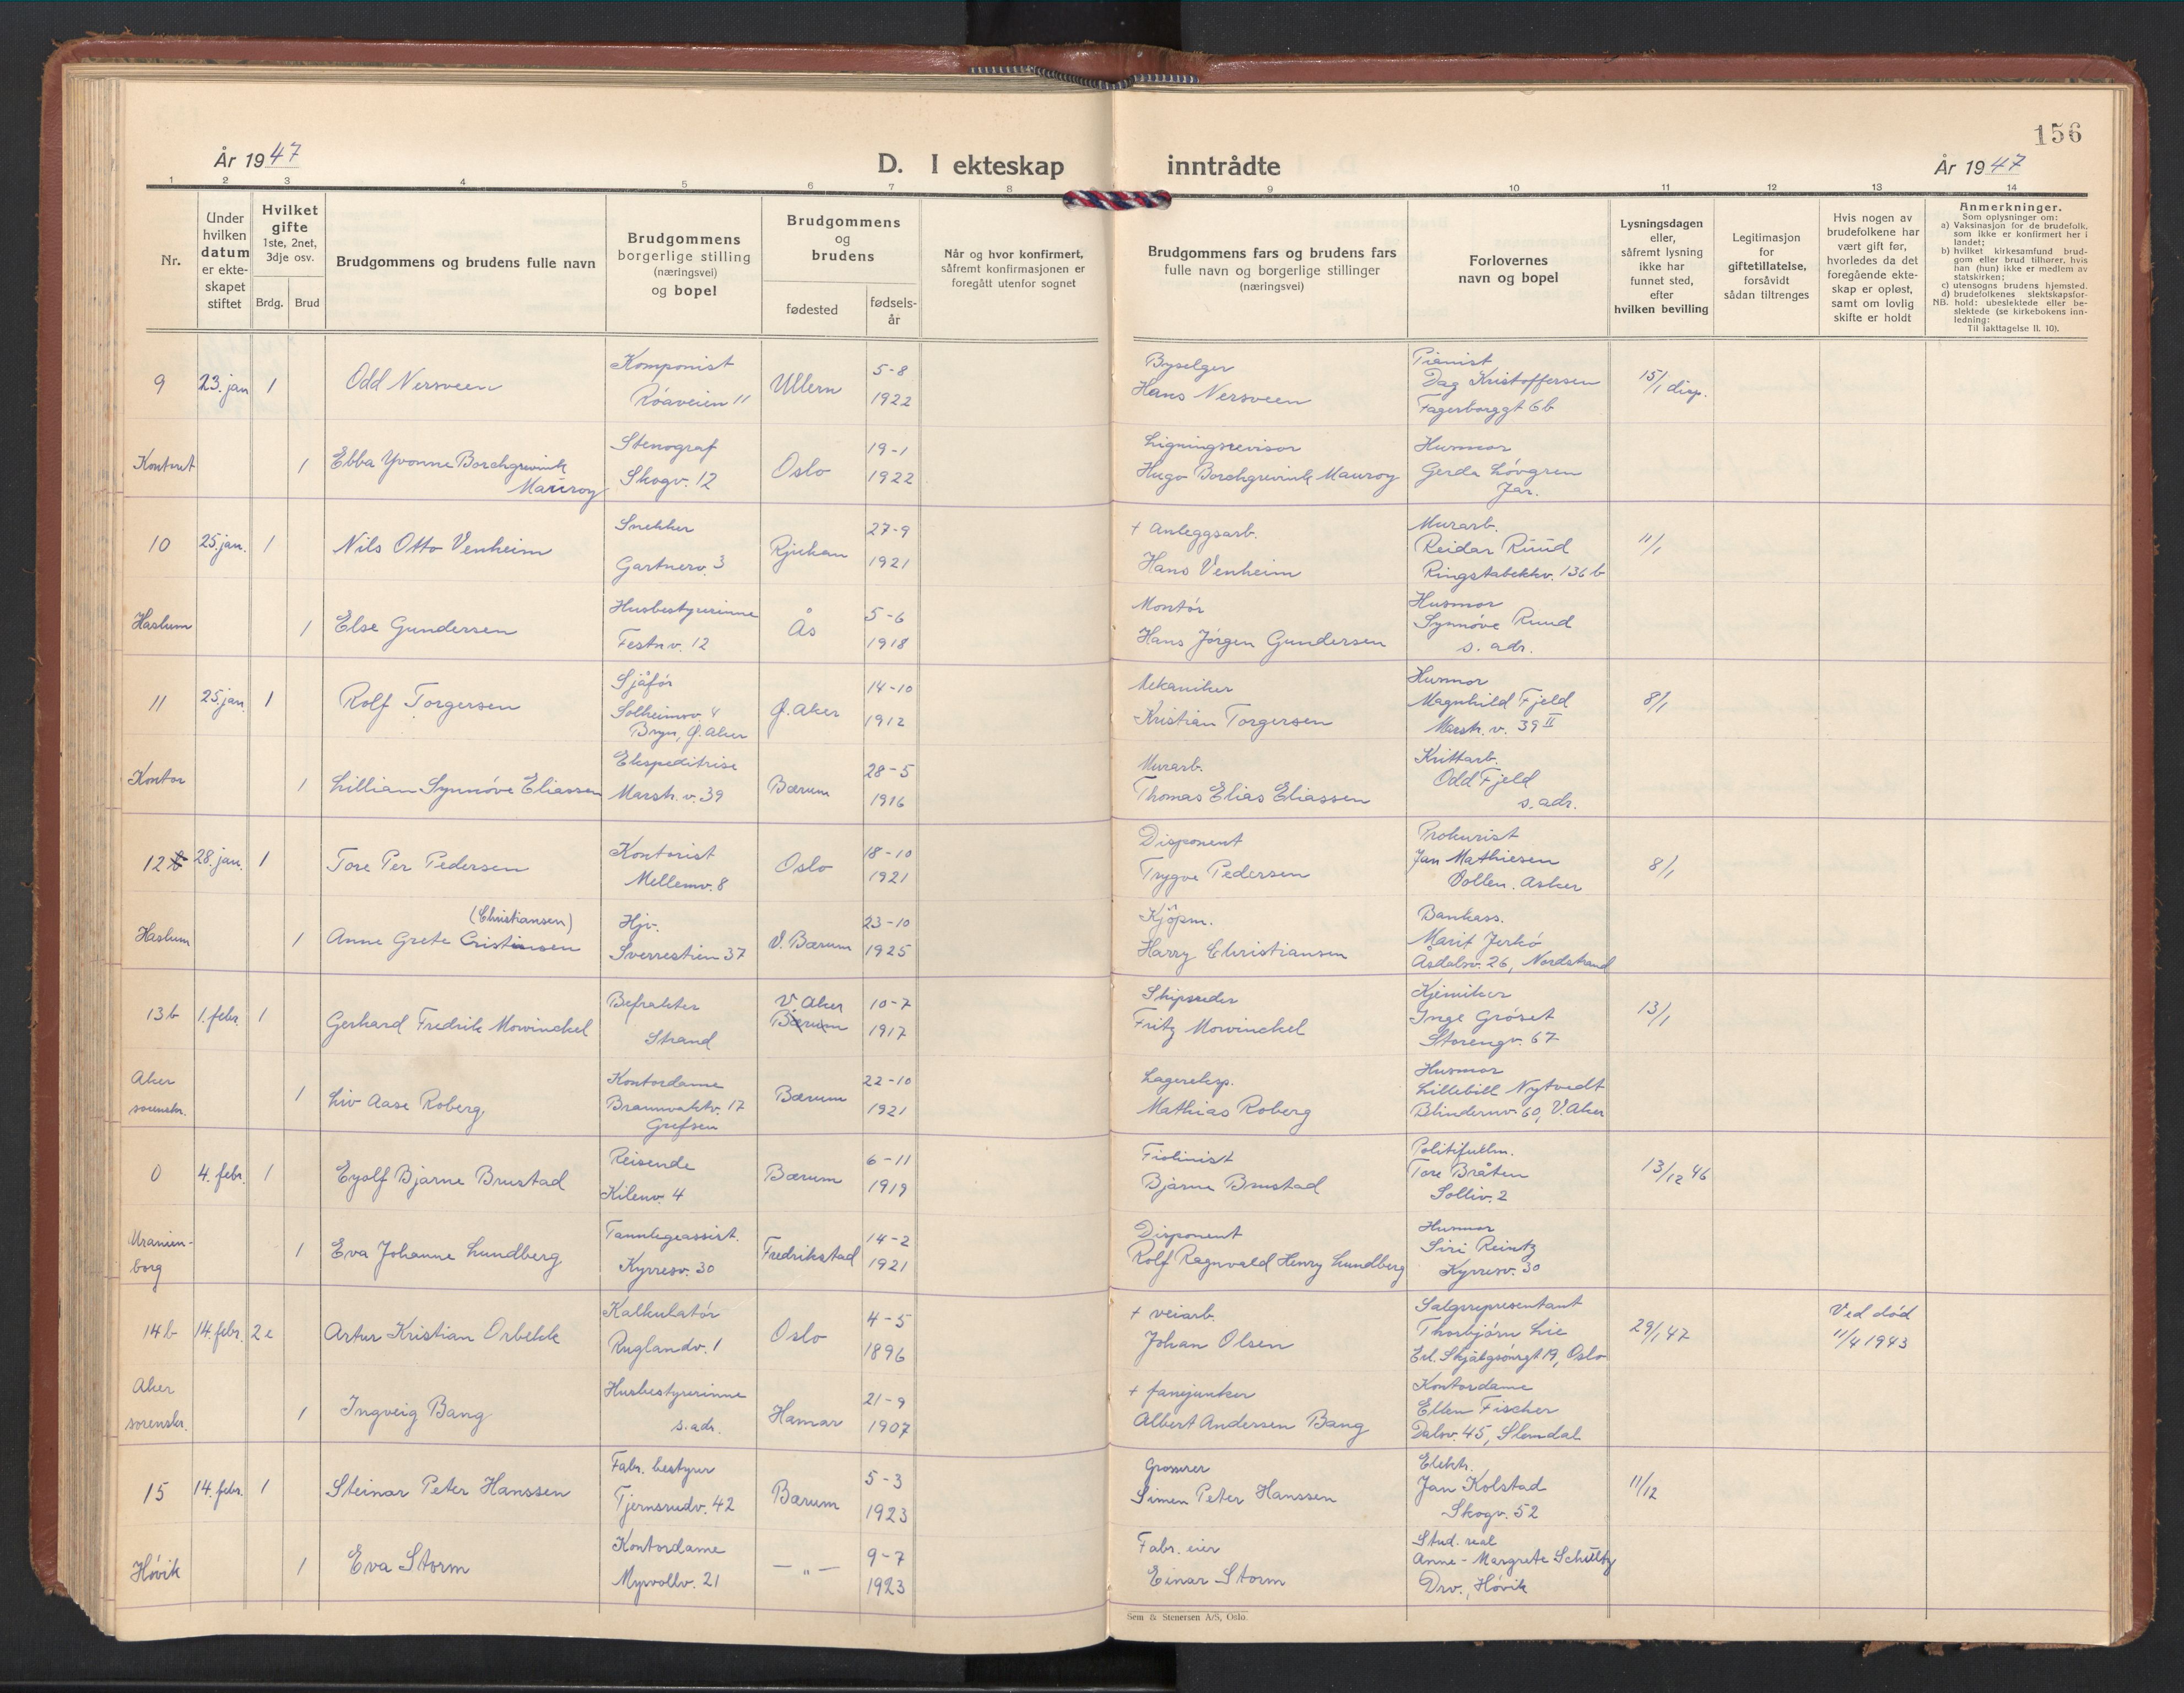 156
År 1947
D. I ekteskap inntrådte
År 1947
1 2 3 4 5 6 7 8 9 10 11 12 13 14
Nr.
Under hvilken datum er ekteskapet stiftet
Hvilket gifte
1ste, 2net, 3dje osv.
Brdg. Brud
Brudgommens og brudens fulle navn
Brudgommens borgerlige stilling (næringsvei) og bopel
Brudgommens og brudens
fødested
fødselsår
Når og hvor konfirmert, såfremt konfirmasjonen er foregått utenfor sognet
Brudgommens fars og brudens fars fulle navn og borgerlige stillinger (næringsvei)
Forlovernes navn og bopel
Lysningsdagen eller, såfremt lysning ikke har funnet sted, efter hvilken bevilling
Legitimasjon for giftetillatelse, forsåvidt sådan tiltrenges
Hvis nogen av brudefolkene har vært gift før, hvorledes da det foregående ekteskap er opløst, samt om lovlig skifte er holdt
Anmerkninger.
Som oplysninger om:
a) Vaksinasjon for de brudefolk, som ikke er konfirmert her i landet;
b) hvilket kirkesamfund brudgom eller brud tilhører, hvis han (hun) ikke er medlem av statskirken;
c) utensogns brudens hjemsted.
d) brudefolkenes slektskapsforhold: ubeslektede eller beslektede (se kirkebokens innledning:
NB.
Til iakttagelse II. 10).
9 23. jan 1 Odd Nersveen Komponist Røaveien 11 Ullern 5-8 1922 Byselger Hans Nersveen Pianist Dag Kristoffersen Fagerborggt 6b 15/1 disp.
Kontoret 1 Ebba Yvonne Borchgrevink Mauroy Stenograf Skogv. 12 Oslo 19-1 1922 Ligningsrevisor Hugo Borchgrevink Mauroy Husmor Gerda Løvgren Jar.
10 25. jan. 1 Nils Otto Venheim Snekker Gartnerv. 3 Rjukan 27-9 1921 + Anleggsarb. Hans Venheim Murarb. Reidar Ruud Ringstabekkv. 136 b 11/1
Haslum 1 Else Gundersen Husbestyrerinne Festnv. 12 Ås 5-6 1918 Montør Hans Jørgen Gundersen Husmor Synnøve Ruud s. adr.
11 25. jan. 1 Rolf Torgersen Sjåfør Solheimsv. 4 Bryn, Ø. Aker Ø. Aker 14-10 1912 Mekaniker Kristian Torgersen Husmor Magnhild Fjeld Marstr. v. 39 II 8/1
Kontor 1 Lillian Synnøve Eliassen Ekspeditrise Marstr. v. 39 Bærum 28-5 1916 Murarb. Thomas Elias Eliassen Krittarb. Odd Fjeld s. adr.
12 28. jan. 1 Tore Per Pedersen Kontorist Mellemv. 8 Oslo 18-10 1921 Disponent Trygve Pedersen Prokurist Jan Mathiesen Vollen. Asker 8/1
Haslum 1 Anne Grete Cristinsen (Christiansen) Hjv. Sverrestien 37 V. Bærum 23-10 1925 Kjøpm. Harry Christiansen Bankass. Marit Jerkø Åsdalsv. 26, Nordstrand
13 b 1. febr. 1 Gerhard Fredrik Mowinckel Befrakter Strand V Aker Bærum 10-7 1917 Skipsreder Fritz Mowinckel Kjemiker Inge Grøset Storengv. 67 13/1
Aker sorenskr. 1 Liv Aase Roberg Kontordame Brannvaktv. 17 Grefsen Bærum 22-10 1921 Lagereksp. Mathias Roberg Husmor Lillebill Nytvedt Blindernv. 60, V. Aker
0 4. febr. 1 Eyolf Bjarne Brustad Reisende Kilenv. 4 Bærum 6-11 1919 Fiolinist Bjarne Brustad Politifullm. Tore Bråten Solliv. 2 13/12 46
Uranienborg 1 Eva Johanne Lundberg Tannlegeassist. Kyrresv. 30 Fredrikstad 14-2 1921 Disponent Rolf Ragnvald Henry Lundberg Husmor Siri Reintz Kyrresv. 30
14 b 14. febr. 2 e Artur Kristian Orbekk Kalkulatør Ruglandv. 1 Oslo 4-5 1896 + veiarb. Johan Olsen Salgsrepresentant Thorbjørn Lie Erl. Skjalgsønsgt 19, Oslo 29/1 47 Ved død 11/4 1943
Aker sorenskr. 1 Ingveig Bang Husbestyrerinne s. adr. Hamar 21-9 1907 + fanejunker Albert Andersen Bang Kontordame Ellen Fischer Dalsv. 45, Slemdal
15 14. febr. 1 Steinar Peter Hanssen Fabr. bestyrer Tjernsrudv. 42 Bærum 5-3 1923 Grosserer Simen Peter Hanssen Elektr. Jan Kolstad Skogv. 52 11/12
Høvik 1 Eva Storm Kontordame Myrvollv. 21 — " — 9-7 1923 Fabr. eier Einar Storm Stud. real Anne-Margrete Schultz Drv., Høvik
Sem & Stenersen A/S, Oslo.